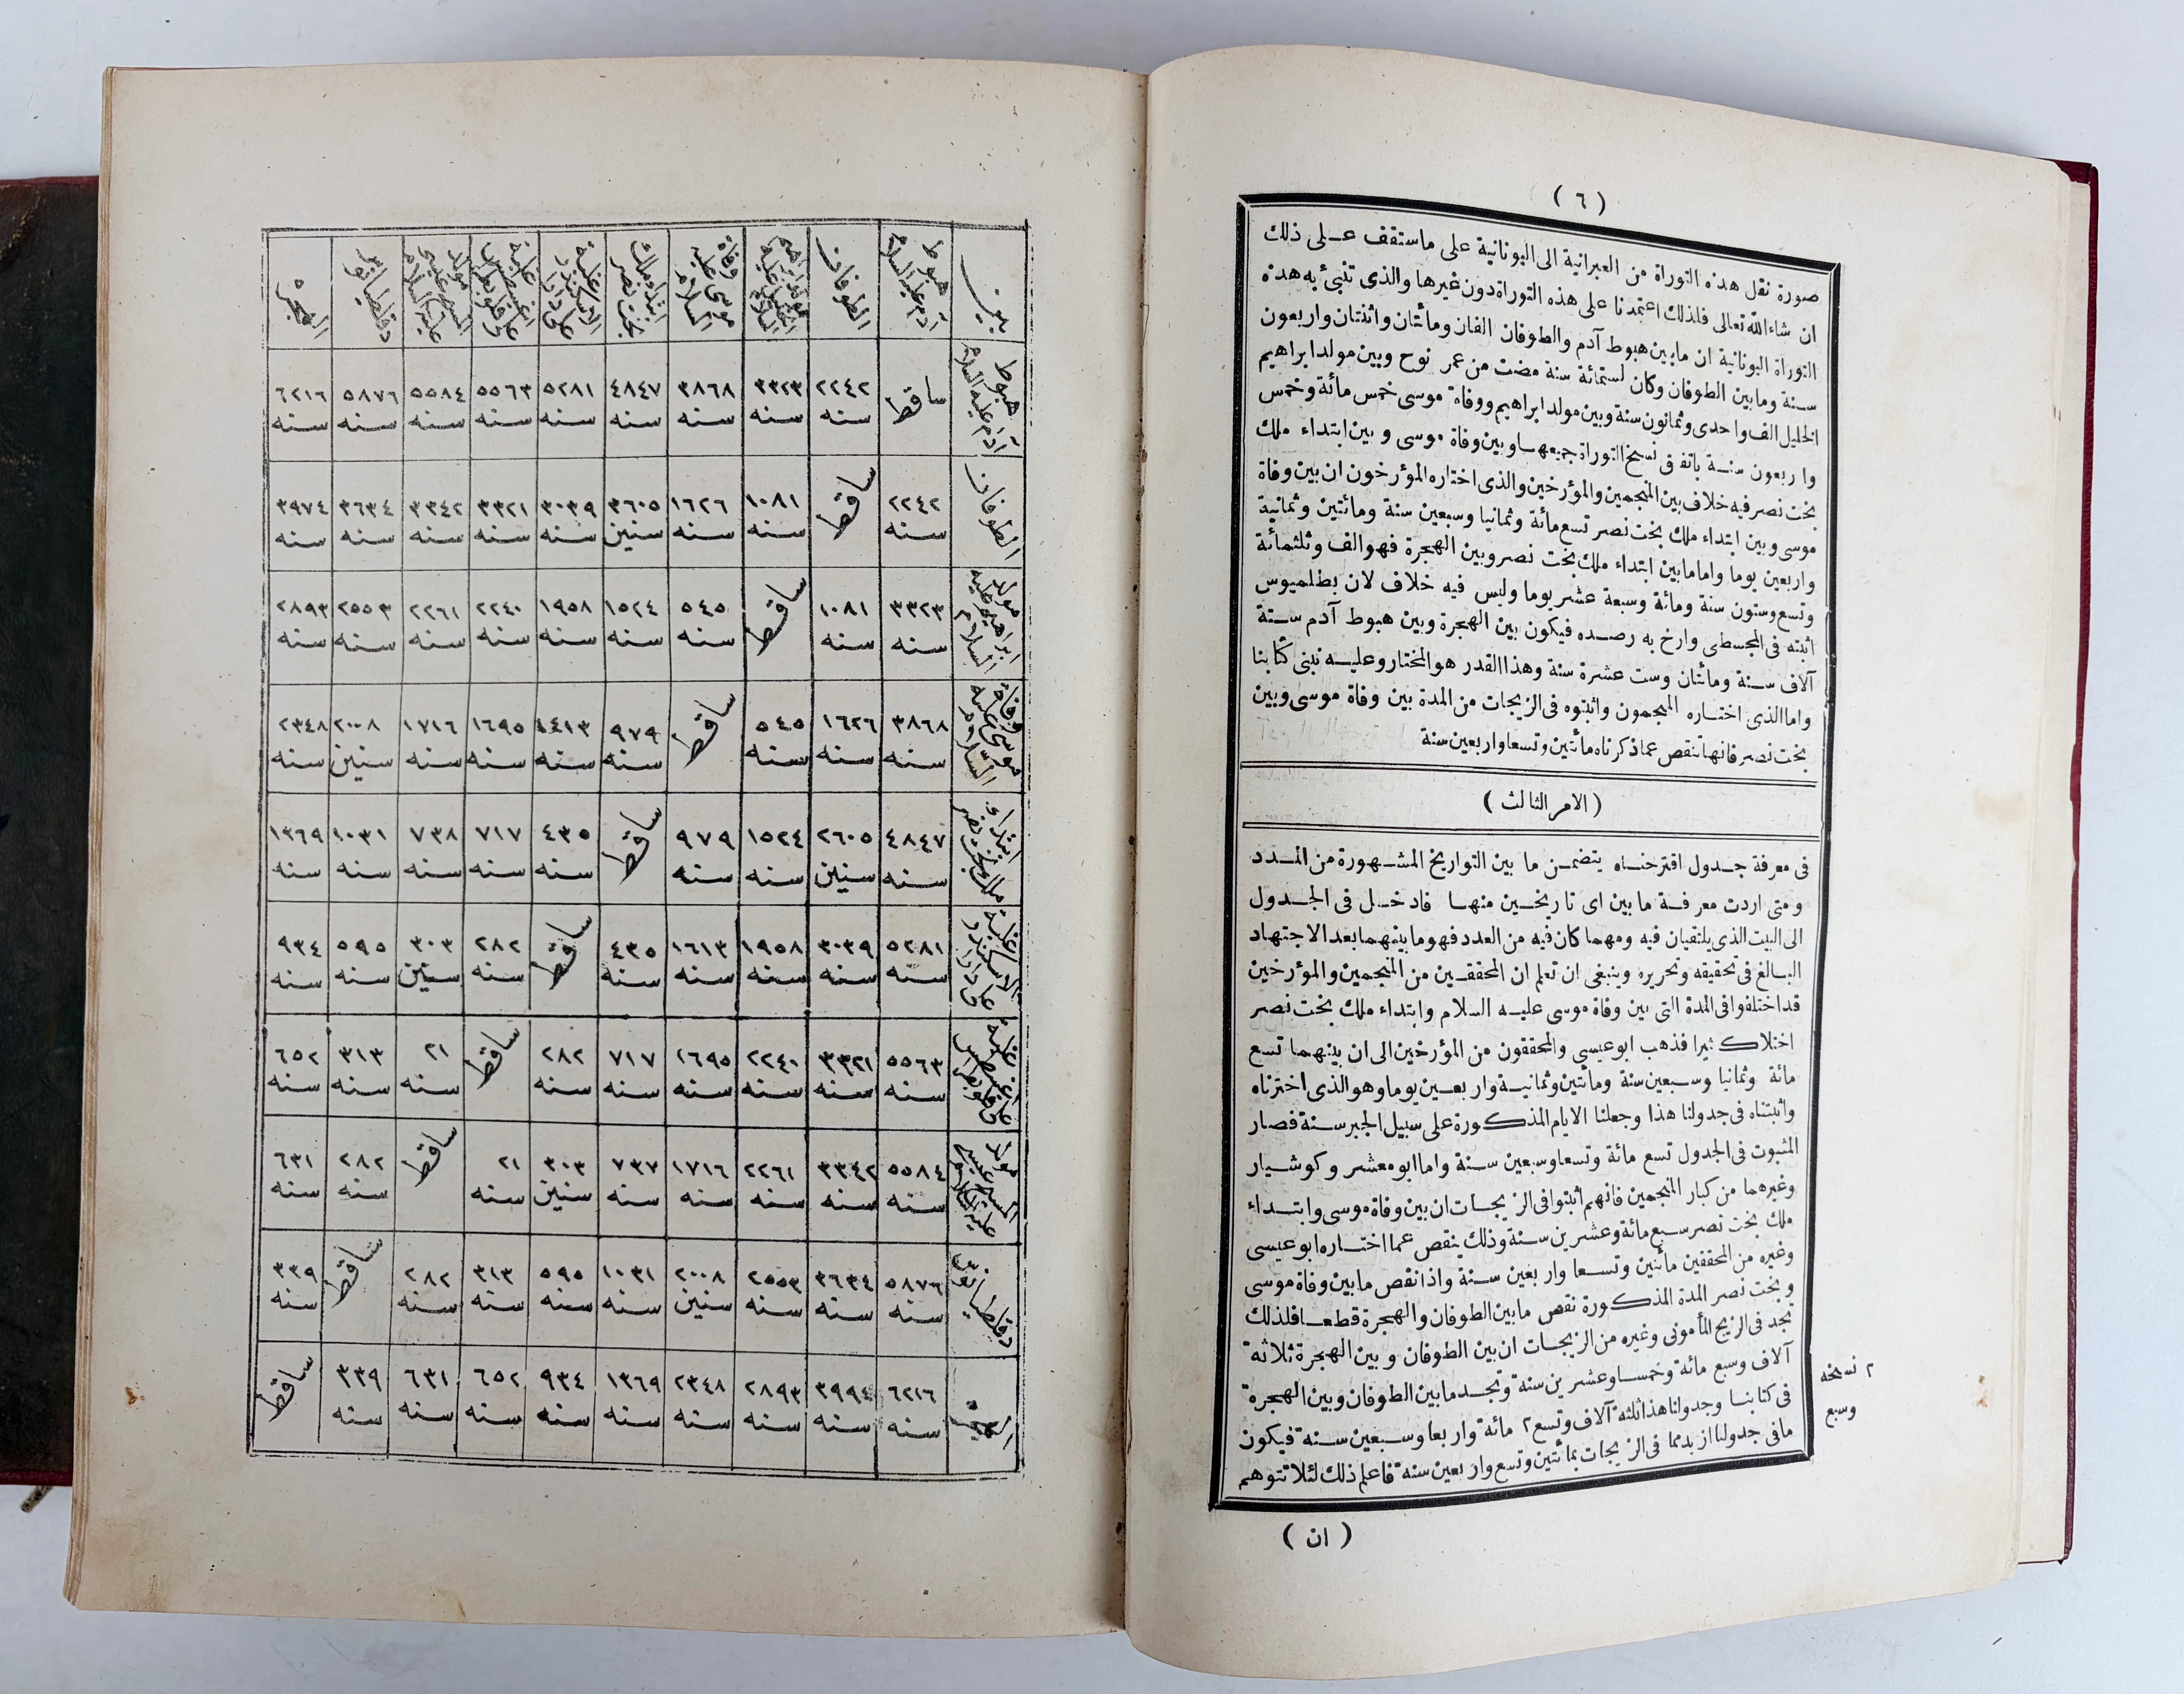 ( ٦ )
صورة نقل هذه التوراة من العبرانية الى اليونانية على ماستقف عـلى ذلك
ان شاءاللّه تعالى فلذلك اعتمدنا على هذه التوراة دون غيرها والذى تنبئ به هذه
التوراة اليونانية ان مابين هبوط آدم والطوفان الفان ومائتان واثنتان واربعون
سـنة ومابين الطوفان وكان لستمائة سنة مضت من عمر نوح وبين مولد ابراهيم
الخليل الف واحدى وثمانون سنة وبين مولد ابراهيم ووفاة موسى خمس مائة وخمس
واربعون سنـة باتفاق نسخ التوراة جميعهـا وبين وفاة موسى وبين ابتداء ملك
بخت نصر فيه خلاف بين المنجمين والمؤرخين والذى اختاره المؤرخون ان بين وفاة
موسى وبين ابتداء ملك بخت نصر تسع مائة وثمانيا وسبعين سنة ومائتين وثمانية
واربعين يوما واما مابين ابتداء ملك بخت نصر وبين الهجرة فهو الف وثلثمائة
وتسع وستون سنة ومائة وسبعة عشر يوما وليس فيه خلاف لان بطلميوس
اثبته فى المجسطى وارخ به رصـده فيكون بين الهجرة وبين هبوط آدم سـتة
آلاف سـنة ومائتان وست عشرة سنة وهذا القدر هو المختار وعليـه نبنى كتابنا
واما الذى اختـاره المنجمون واثبتوه فى الزيجات من المدة بين وفاة موسى وبين
بخت نصر فانها تنقص عما ذكرناه مائتين وتسعا واربعين سنة
( الامر الثالث )
فى معرفة جـدول اقترحنـاه يتضمـن ما بين التواريخ المشـهورة من المـدد
ومتى اردت معرفـة ما بين اى تاريخـين منهـا فادخـل فى الجـدول
الى البيت الذى يلتقيان فيه ومهما كان فيه من العدد فهو ما بينهما بعد الاجتهاد
البـالغ فى تحقيقه وتحريره وينبغى ان تعلم ان المحققـين من المنجمين والمؤرخين
قد اختلفوا فى المدة التى بين وفاة موسى عليـه السلام وابتداء ملك بخت نصر
اختلاكـ ثيرا فذهب ابو عيسى والمحققون من المؤرخين الى ان بينهما تسع
مائة وثمانيا وسـبعين سنة ومائتين وثمانيـة واربعـين يوما وهو الذى اخترناه
واثبتناه فى جدولنا هذا وجعلنا الايام المذكـورة على سبيل الجبر سـنة فصار
المثبوت فى الجدول تسع مائة وتسعا وسبعين سـنة واما ابو معشر وكوشـيار
وغيرهما من كبار المنجمين فانهم اثبتوا فى الزيجـات ان بين وفاة موسى وابتـداء
ملك بخت نصر سبع مائة وعشرين سـنة وذلك ينقص عما اختـاره ابو عيسى
وغيره من المحققين مائتين وتسـعا واربعين سـنة واذا نقص مابين وفاة موسى
وبخت نصر المدة المذكـورة نقص مابين الطوفان والهجرة قطعـا فلذلك
تجد فى الزيج المأمونى وغيره من الزيجـات ان بين الطوفان وبين الهجرة ثلاثة
آلاف وسبع مائة وخمسـا وعشرين سنة وتجـد مابين الطوفان وبين الهجرة
فى كتابنـا وجدولنا هذا ثلثة آلاف وتسع ٢ مائة واربعا وسـبعين سـنة فيكون
مافى جدولنا ازيد مما فى الزيجات بمائتين وتسع واربعين سنة فاعلم ذلك لئلا تتوهم
٢ نسخه
وسبع
( ان )
بين هبوط آدم عليه السلام الطوفان مولد ابراهيم الخليل عليه السلام وفاة موسى عليه السلام ابتداء ملك بخت نصر غلبة الاسكندر على دارا غلبة اغسطس على قلوبطرا مولد المسيح عيسى عليه السلام دقلطيانوس الهجره
هبوط آدم عليه السلام ساقط ٢٢٤٢ سنه ٣٣٢٣ سنه ٣٨٦٨ سنه ٤٨٤٧ سنه ٥٢٨١ سنه ٥٥٦٣ سنه ٥٥٨٤ سنه ٥٨٧٦ سنه ٦٢١٦ سنه
الطوفان ٢٢٤٢ سنه ساقط ١٠٨١ سنه ١٦٢٦ سنه ٣٦٠٥ سنين ٣٠٣٩ سنه ٣٣٢١ سنه ٣٣٤٢ سنه ٣٦٣٤ سنه ٣٩٧٤ سنه
مولد ابراهيم عليه السلام ٣٣٢٣ سنه ١٠٨١ سنه ساقط ٥٤٥ سنه ١٥٢٤ سنه ١٩٥٨ سنه ٢٢٤٠ سنه ٢٢٦١ سنه ٢٥٥٣ سنه ٢٨٩٣ سنه
وفاة موسى عليه السلام ٣٨٦٨ سنه ١٦٢٦ سنه ٥٤٥ سنه ساقط ٩٧٩ سنه ١٤١٣ سنه ١٦٩٥ سنه ١٧١٦ سنه ٢٠٠٨ سنين ٢٣٤٨ سنه
ابتداء ملك بخت نصر ٤٨٤٧ سنه ٢٦٠٥ سنين ١٥٢٤ سنه ٩٧٩ سنه ساقط ٤٣٥ سنه ٧١٧ سنه ٧٣٨ سنه ١٠٣١ سنه ١٣٦٩ سنه
غلبة الاسكندر على دارا ٥٢٨١ سنه ٣٠٣٩ سنه ١٩٥٨ سنه ١٦١٣ سنه ٤٣٥ سنه ساقط ٢٨٢ سنه ٣٠٣ سنين ٥٩٥ سنه ٩٣٤ سنه
غلبة اغسطس على قلوبطرا ٥٥٦٣ سنه ٣٣٢١ سنه ٢٢٤٠ سنه ١٦٩٥ سنه ٧١٧ سنه ٢٨٢ سنه ساقط ٢١ سنه ٣١٣ سنه ٦٥٢ سنه
مولد المسيح عيسى عليه السلام ٥٥٨٤ سنه ٣٣٤٢ سنه ٢٢٦١ سنه ١٧١٦ سنه ٧٣٧ سنه ٣٠٣ سنين ٢١ سنه ساقط ٢٨٢ سنه ٦٣١ سنه
دقلطيانوس ٥٨٧٦ سنه ٣٦٣٤ سنه ٢٥٥٣ سنه ٢٠٠٨ سنين ١٠٣١ سنه ٥٩٥ سنه ٣١٣ سنه ٢٨٢ سنه ساقط ٣٣٩ سنه
الهجرة ٦٢١٦ سنه ٣٩٩٤ سنه ٢٨٩٣ سنه ٢٣٤٨ سنه ١٣٦٩ سنه ٩٣٤ سنه ٦٥٢ سنه ٦٣١ سنه ٣٣٩ سنه ساقط